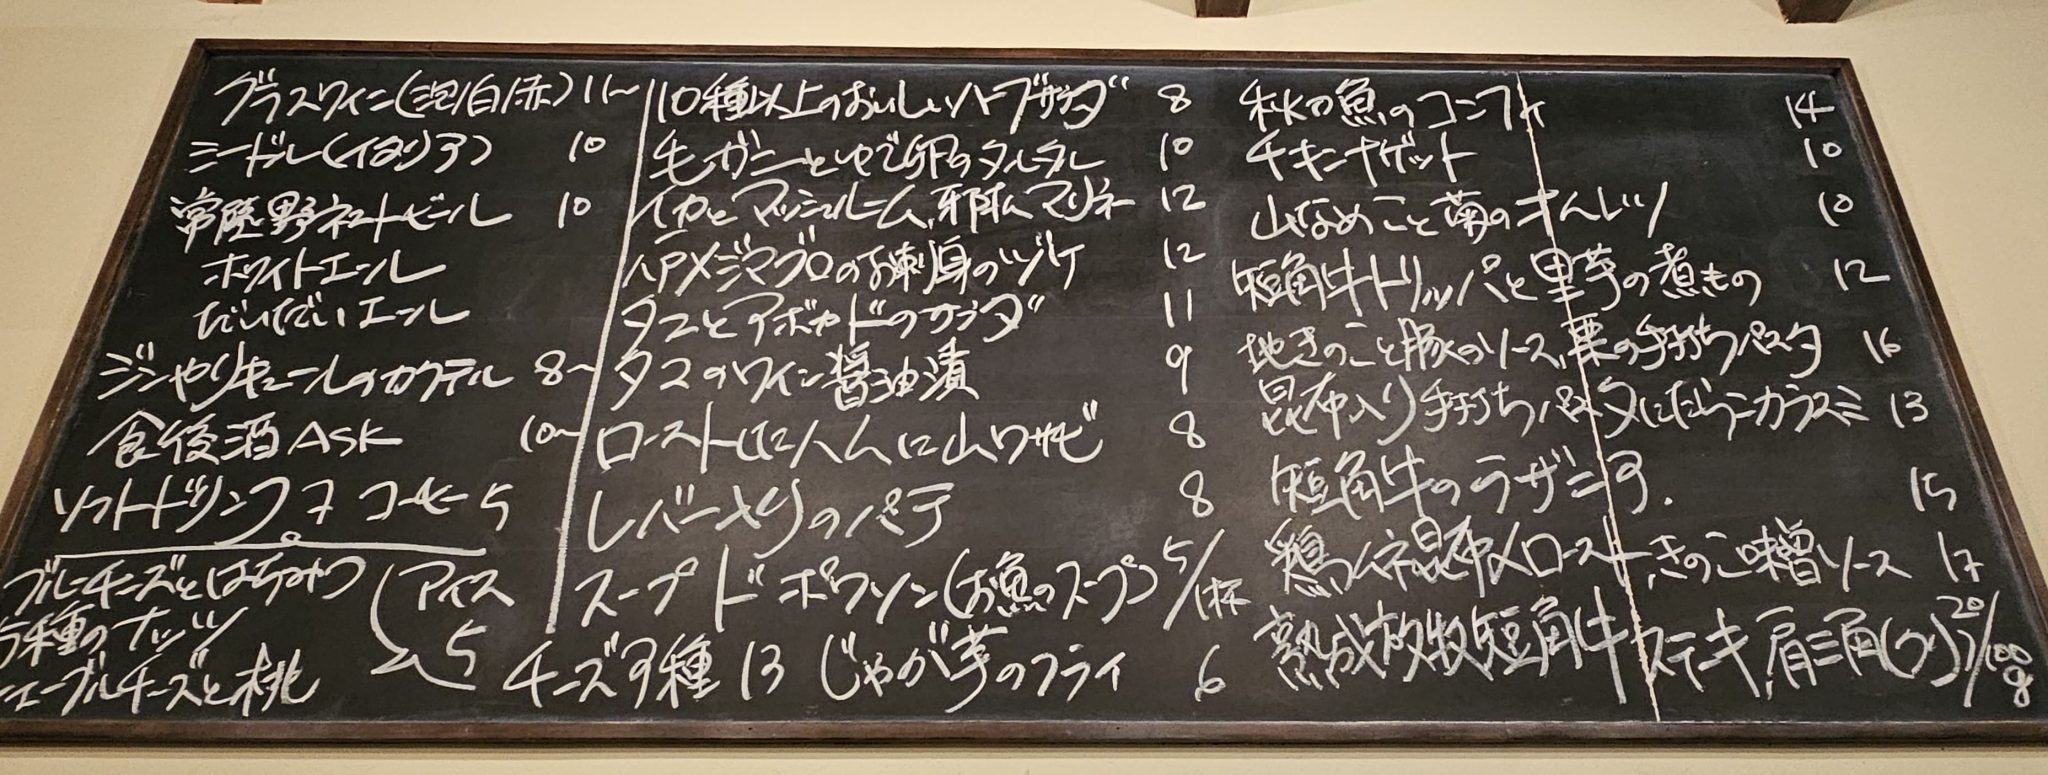 グラスワイン(泡/白/赤) 11〜
ミードル(イタリア) 10
常陸野ネストビール 10
ホワイトエール
だいだいエール
ジンやリキュールのカクテル 8〜
食後酒 ASK 10〜
ソフトドリンク。 コーヒー 5
ブルーチーズとはちみつ
5種のナッツ
ブルーチーズと桃
アイス
5
10種以上のおいしいハーブサラダ 8
毛ガニとゆで卵のタルタル 10
イカとマッシュルーム、マリネ 12
メジマグロのお刺身のヅケ 12
タコとアボカドのサラダ 11
タコのワイン醤油漬 9
ローストにんじんに山ワサビ 8
レバー入りのパテ 8
スープ ド ポワソン(お魚のスープ) 5/1杯
チーズ3種 13 じゃが芋のフライ 6
秋の魚のコンフィ 14
チキンナゲット 10
山なめこと菊のオムレツ 10
短角牛トリッパと里芋の煮もの 12
地きのこと豚のソース、栗の手打ちパスタ 16
昆布入り手打ちパスタにだらこカラスミ 13
短角牛のラザニア. 15
鶏ムネ昆布〆ロースト、きのこ味噌ソース 17
熟成放牧短角牛ステキ 肩三角(クリ) 20/100g